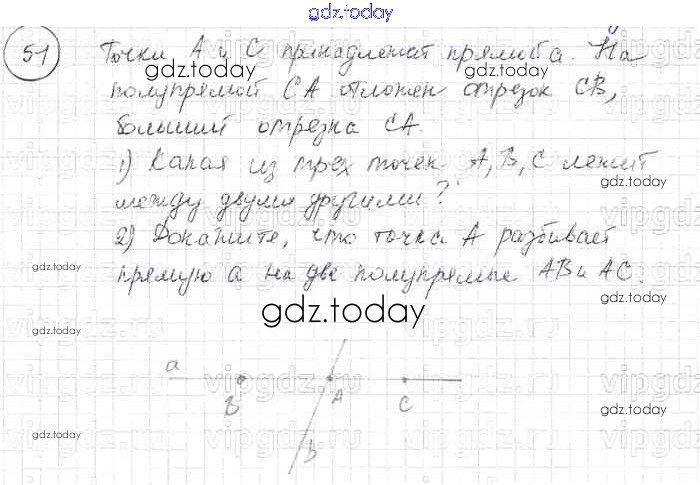 gdz.today
51 Точки А и С принадлежат прямой а. На
gdz.today
полупрямой СА отложен отрезок СВ,
gdz.today
больший отрезка СА.
1) Какая из трех точек А, В, С лежит
gdz.today
между двумя другими?
2) Докажите, что точка А разбивает
gdz.today
прямую а на две полупрямые АВ и АС.
gdz.today
gdz.today
gdz.today
vipgdz.ru
a
B A C
gdz.today
b
gdz.today